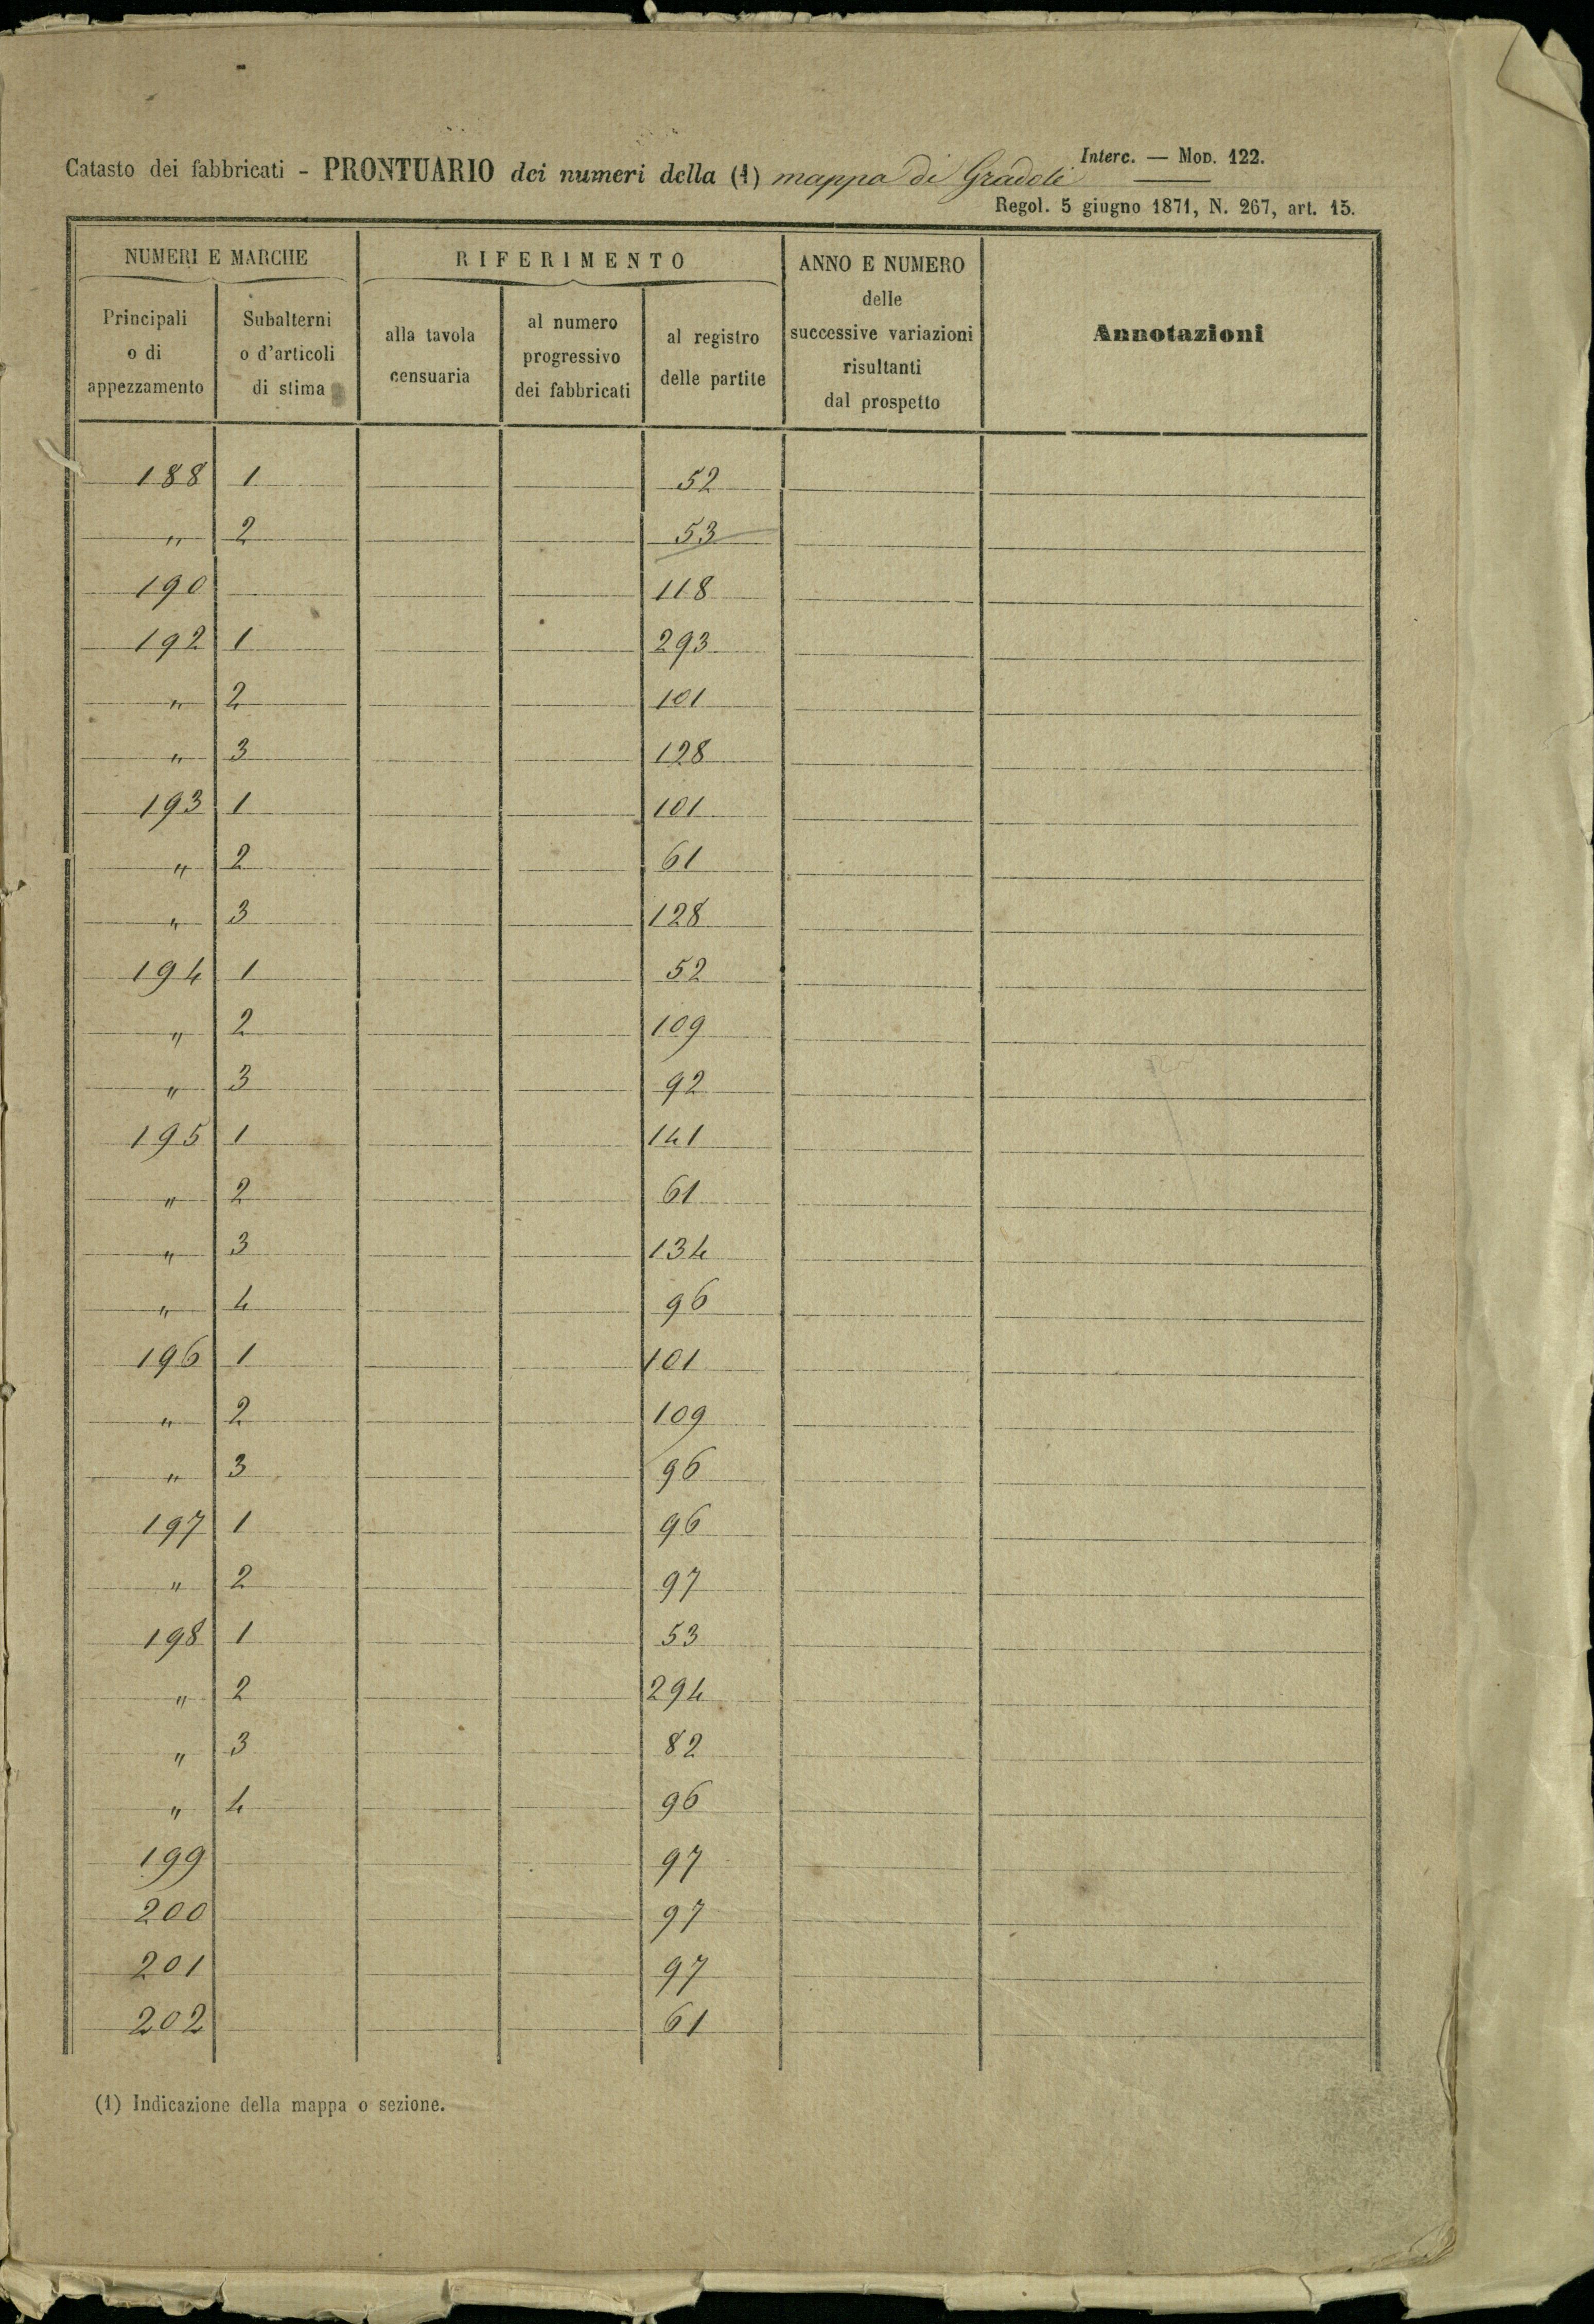 Interc. — Mod. 122.
Catasto dei fabbricati - PRONTUARIO dei numeri della (1) mappa di Gradoli
Regol. 5 giugno 1871, N. 267, art. 15.
NUMERI E MARCHE RIFERIMENTO ANNO E NUMERO delle successive variazioni risultanti dal prospetto Annotazioni
Principali o di appezzamento Subalterni o d'articoli di stima alla tavola censuaria al numero progressivo dei fabbricati al registro delle partite
188 1 52
" 2 53
190 118
192 1 293
" 2 101
" 3 128
193 1 101
" 2 61
" 3 128
194 1 52
" 2 109
" 3 92
195 1 141
" 2 61
" 3 134
" 4 96
196 1 101
" 2 109
" 3 96
197 1 96
" 2 97
198 1 53
" 2 294
" 3 82
" 4 96
199 97
200 97
201 97
202 61
(1) Indicazione della mappa o sezione.